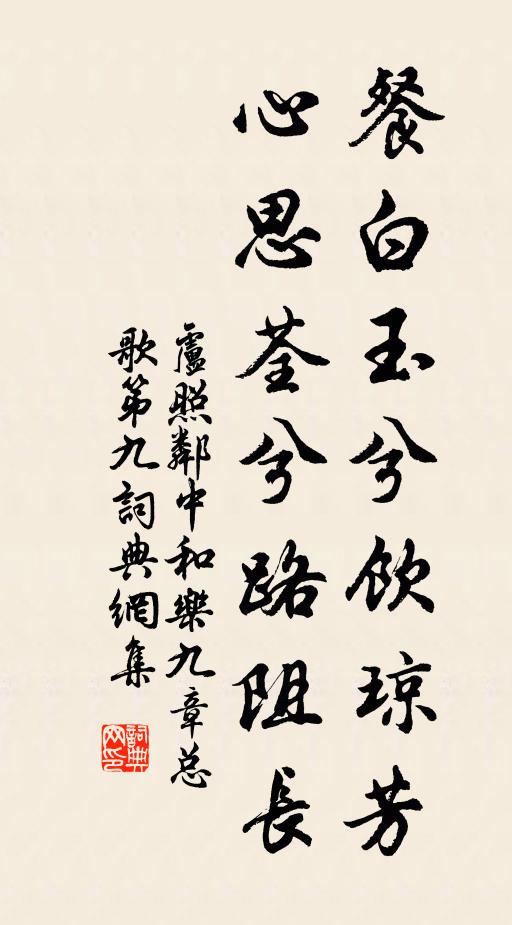 餐白玉兮飲瓊芳
心思荃兮路阻長
盧照鄰中和樂九章总
歌第九詞典網集
詞典
网印